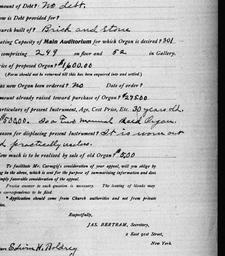 mount of Debt? No debt.
ow is Debt provided for?
urch built of? Brick and Stone
ating Capacity of Main Auditorium for which Organ is desired? 301
comprising 249 on floor and 52 in Gallery.
rice of proposed Organ? $1600.00
(Form should not be returned till this has been inquired into and settled)
s new Organ been ordered? No Date of order?
mount already raised toward purchase of Organ? $275.00
rticulars of present Instrument? Age, Cost Price, Etc. 30 years old.
$500.00. Is a Two manual Reed Organ.
eason for displacing present Instrument? It is worn out
d practically useless.
ow much is to be realized by sale of old Organ?
To facilitate Mr. Carnegie's consideration of your appeal, will you oblige by
ng in the above, which is sent for the purpose of summarizing information and does
imply favorable consideration of the appeal.
Precise answer to each question is necessary. The lasting of blanks may
correspondence to be filed.
Application should come from Church authorities and not from private
Respectfully,
JAS. BERTRAM, Secretary,
2 East 91st Street,
New York.
Edwin H. Boldrey